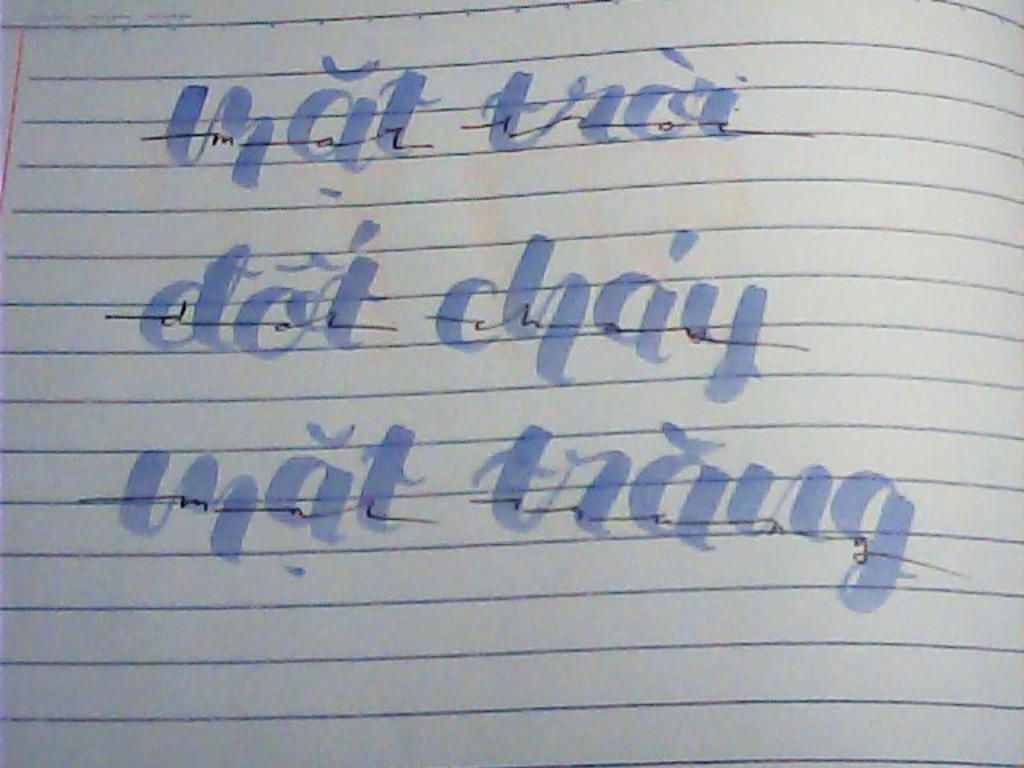 mặt trời
đốt cháy
mặt trăng